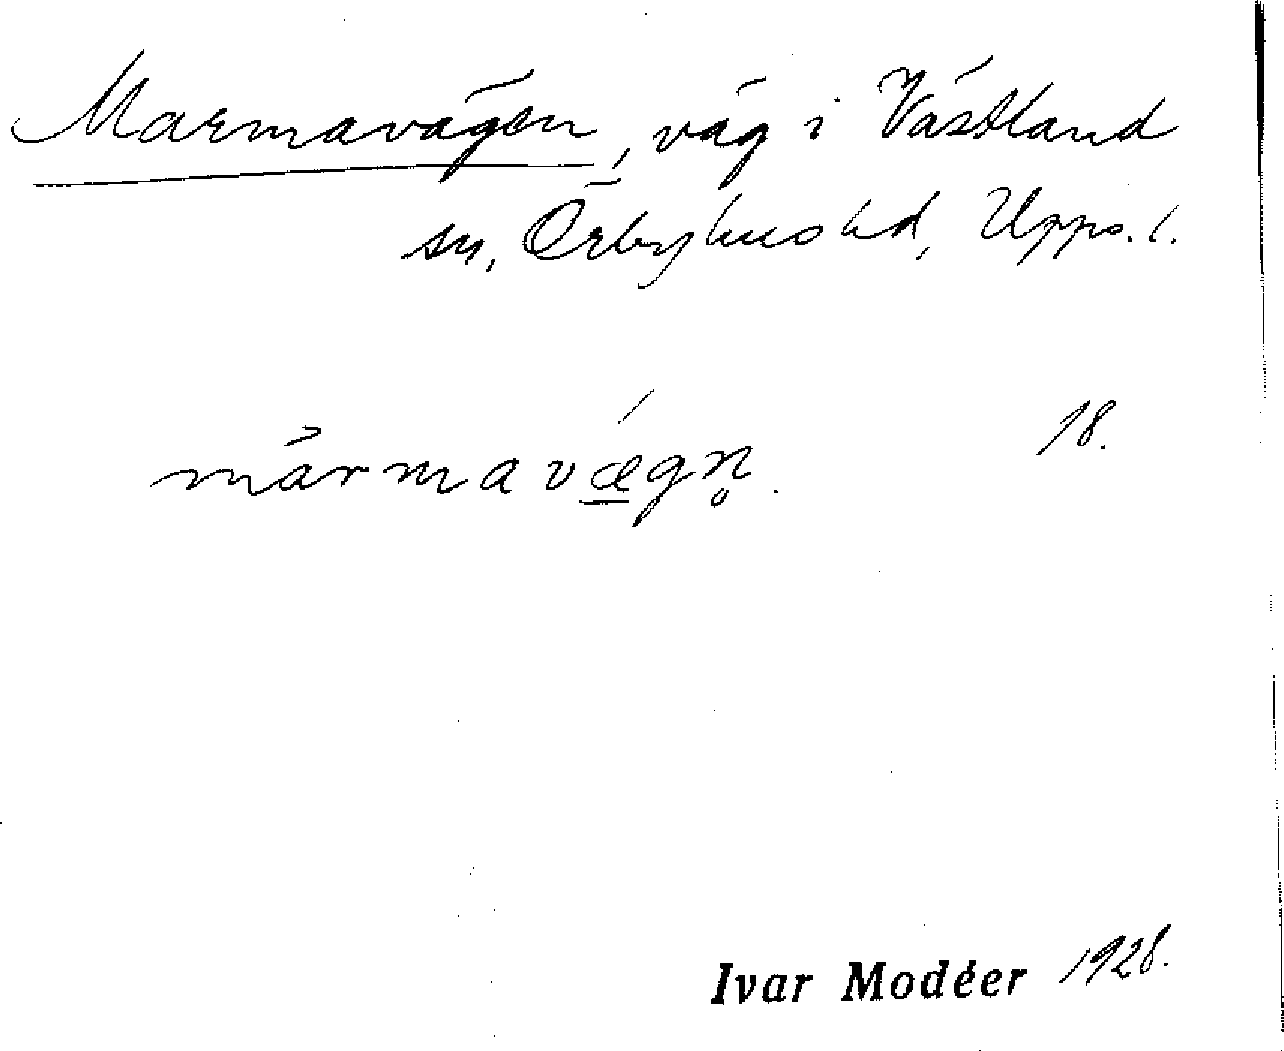 Marmavägen, väg i Västland
sn, Örbyhus hd, Upps. l.
18.
màrmavǽ̲gn̥.
Ivar Modéer 1928.